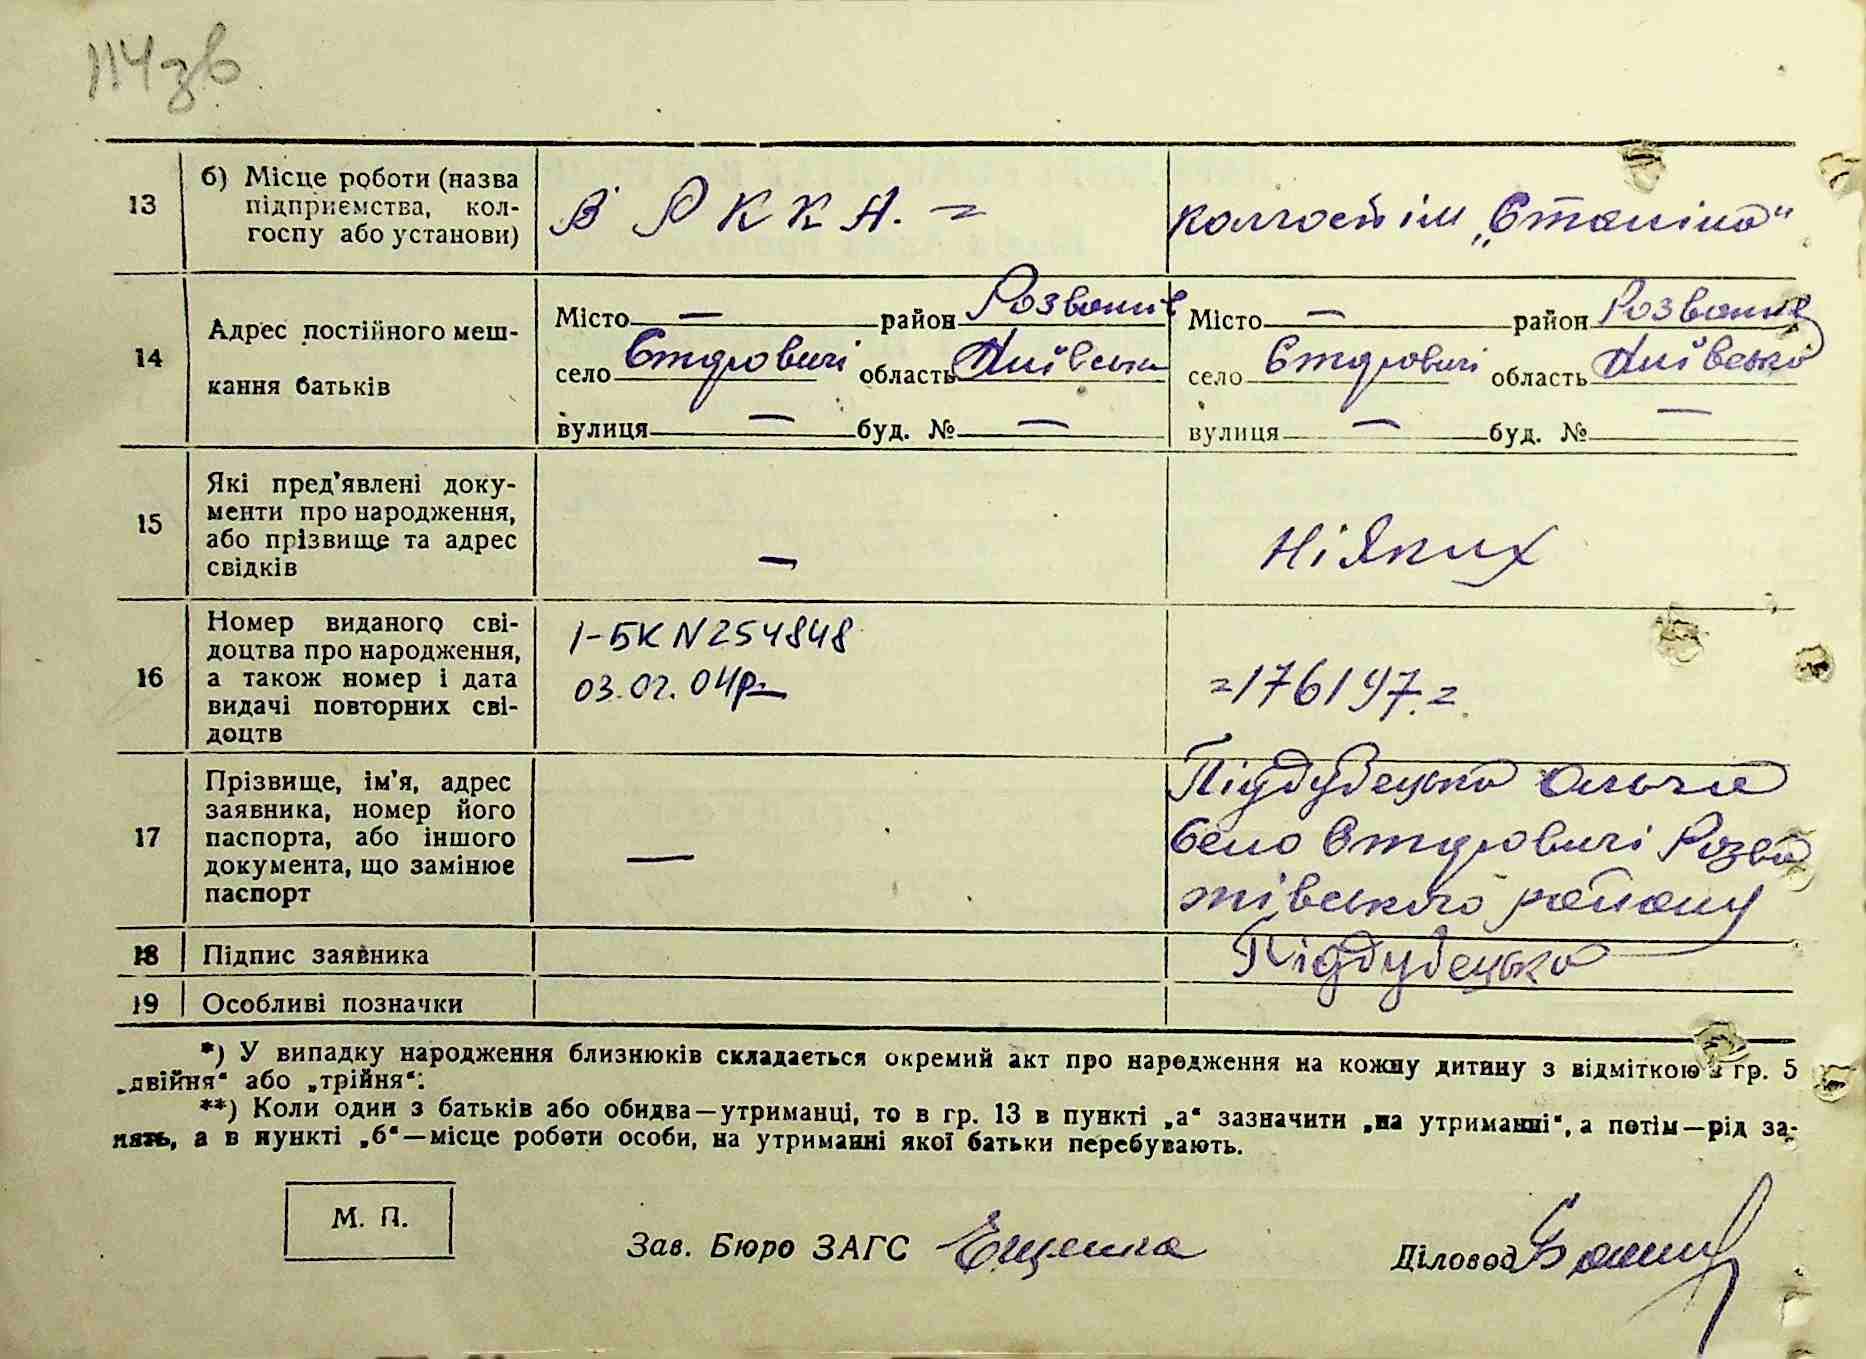 114зв
13 б) Місце роботи (назва підприємства, кол- госпу або установи) В РККА. = колгосп ім „Сталіна“
14 Адрес постійного меш- кання батьків
Місто — район Розважів Місто — район Розважів
село Стдровичі область Київська село Стдровичі область Київсько
вулиця — буд. № — вулиця — буд. № —
15 Які пред'явлені доку- менти про народження, або прізвище та адрес свідків — ніяких
16 Номер виданого сві- доцтва про народження, а також номер і дата видачі повторних сві- доцтв
1-БК N 254848
03.02.04р = 176197. =
17 Прізвище, ім'я, адрес заявника, номер його паспорта, або іншого документа, що замінює паспорт —
Піддубецька Ольга
село Стдровичі Розва
жівського району
18 Підпис заявника Піддубецька
19 Особливі позначки
*) У випадку народження близнюків складається окремий акт про народження на кожну дитину з відміткою в гр. 5
„двійня“ або „трійня“.
**) Коли один з батьків або обидва—утриманці, то в гр. 13 в пункті „а“ зазначити „на утриманні“, а потім—рід за-
нять, а в пункті „б“—місце роботи особи, на утриманні якої батьки перебувають.
М. П.
Зав. Бюро ЗАГС Єщенко Діловод